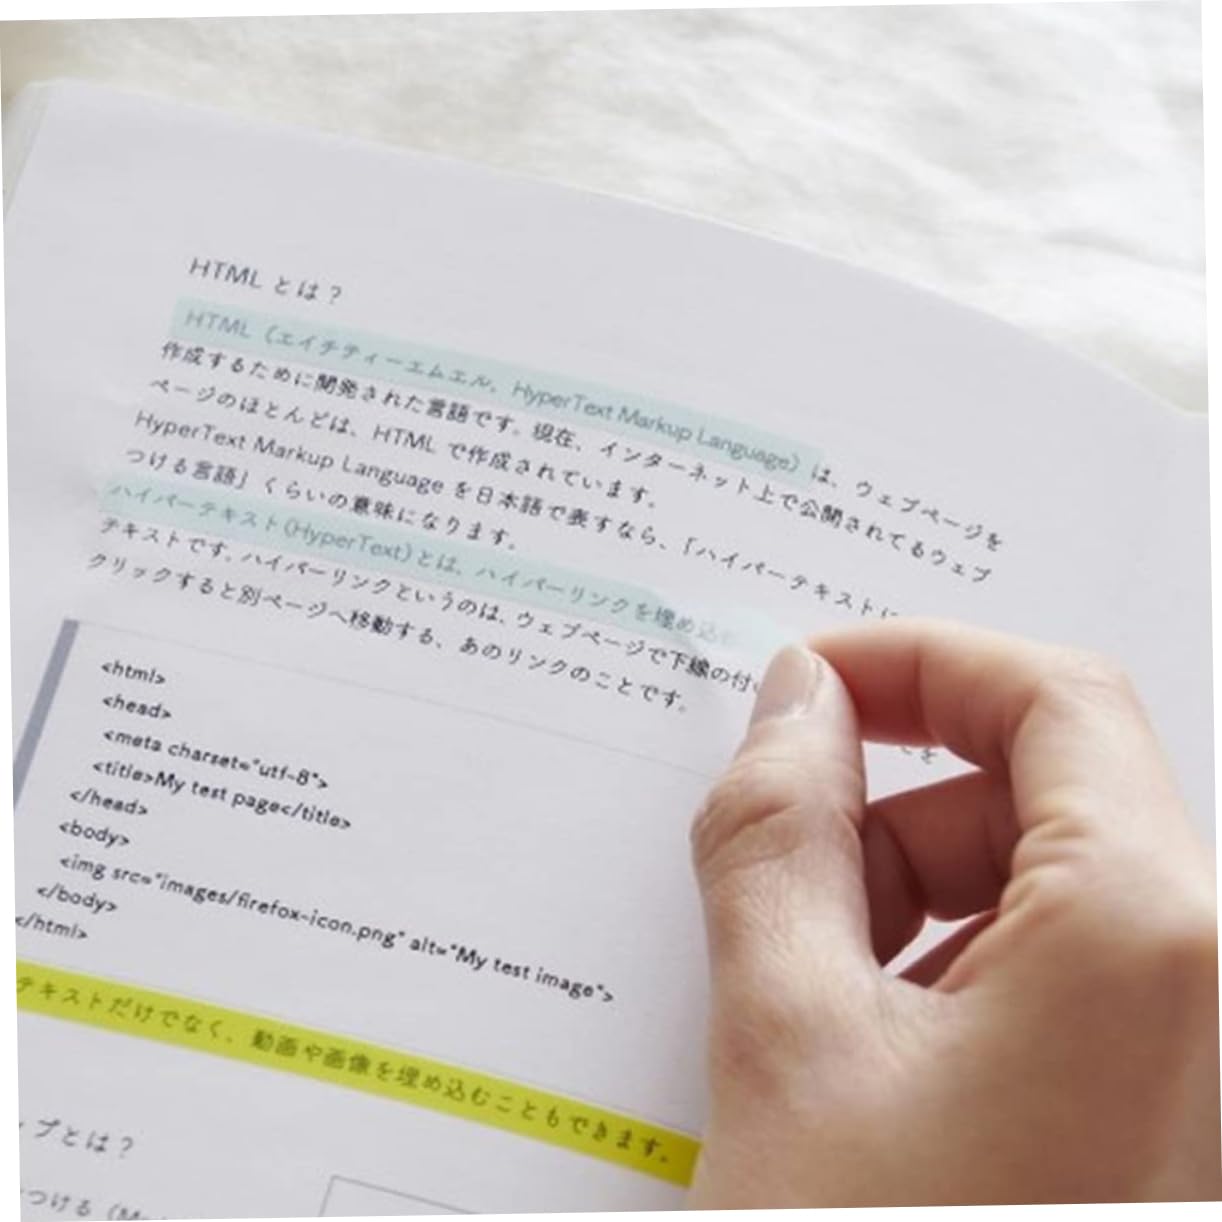 HTML とは？
HTML（エイチティーエムエル、HyperText Markup Language）は、ウェブページを
作成するために開発された言語です。現在、インターネット上で公開されてるウェブ
ページのほとんどは、HTML で作成されています。
HyperText Markup Language を日本語で表すなら、「ハイパーテキストに
つける言語」くらいの意味になります。
ハイパーテキスト(HyperText)とは、ハイパーリンクを埋め込
テキストです。ハイパーリンクというのは、ウェブページで下線の付
クリックすると別ページへ移動する、あのリンクのことです。
とを
<html>
<head>
<meta charset="utf-8">
<title>My test page</title>
</head>
<body>
<img src="images/firefox-icon.png" alt="My test image">
</body>
</html>
テキストだけでなく、動画や画像を埋め込むこともできます。
プとは？
つける（M